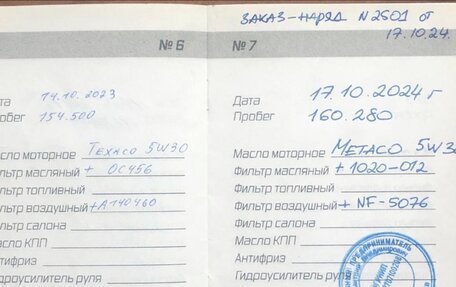 ЗАКАЗ-НАРЯД N2601 от
17.10.24.
№ 6
та 14.10.2023
робег 154.500
асло моторное Texaco 5W30
льтр масляный + OC456
льтр топливный
льтр воздушный +A140460
льтр салона
асло КПП
нтифриз
идроусилитель руля
№ 7
Дата 17.10.2024 г
Пробег 160.280
Масло моторное METACO 5W30
Фильтр масляный +1020-012
Фильтр топливный
Фильтр воздушный + NF-5076
Фильтр салона
Масло КПП
Антифриз
Гидроусилитель руля
ПРЕДПРИНИМАТЕЛЬ